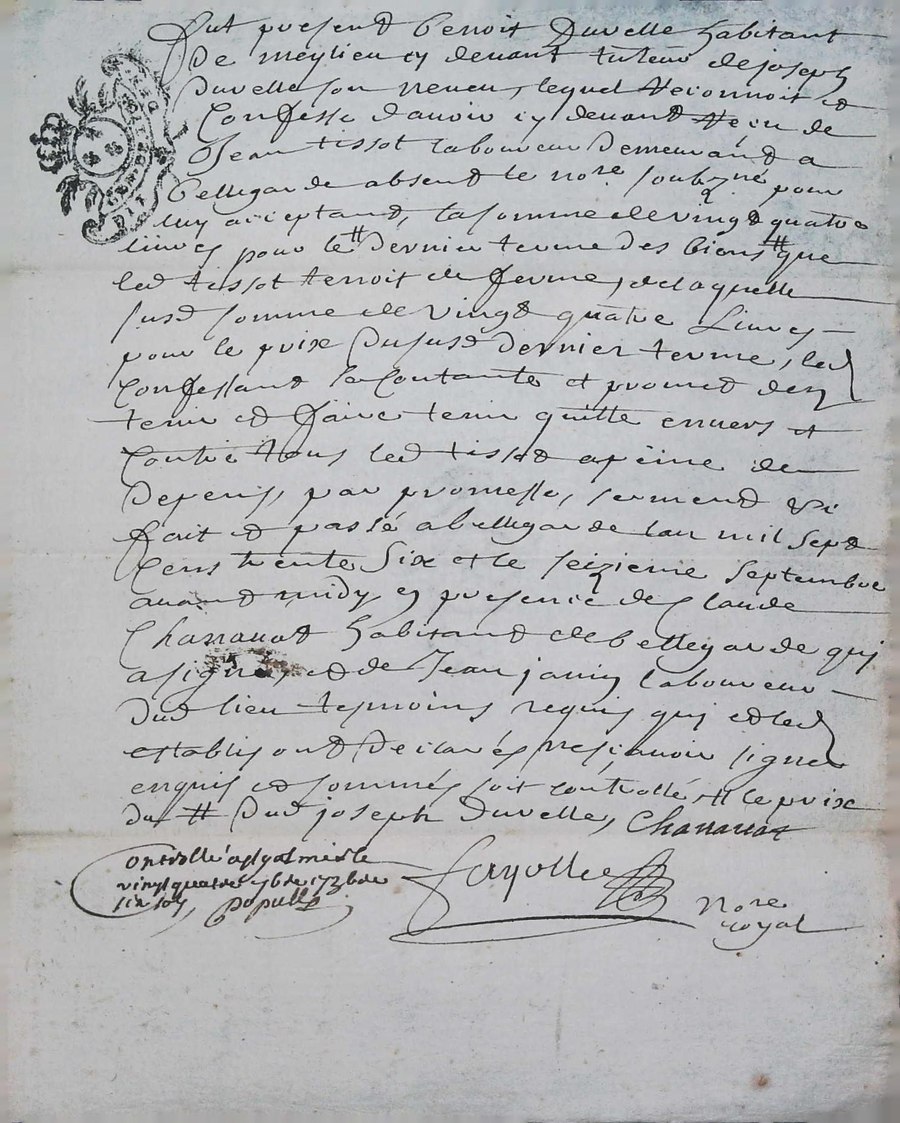 Fut present Benoit Duvelle habitant
de meylieu cy devant tuteur de joseph
Duvelle son neveu, lequel reconnoit et
Confesse d'avoir cy devant receu de
Jean tissot laboureur demeurand a
Bellegarde absent le nore soubzné pour
luy acceptand, la somme de vingt quatre
livres pour le # dernier terme des biens # que
led tissot tenoit de ferme, de laquelle
susd somme de vingt quatre Livres
pour le prix du susd dernier terme, led
Confessant se contante et promet den
tenir et faire tenir quitte envers et
contre tous led tissot a peine de
depens, par promesse, serment &
fait et passé a bellegarde lan mil sept
Cens trente six et le seizieme septembre
avant midy en presence de Claude
Chanavat habitand de bellegarde qui
a signé, et de Jean janin laboureur
dud lieu tesmoins requis qui et led
establis ont declarés ne scavoir signer
enquis et sommés soit controllé # le prix
du # dud joseph duvelle, Chanavat
Controllé a st galmier le
vingt quatre 7bre 1736 de
six sols
fayolle
Nore
royal